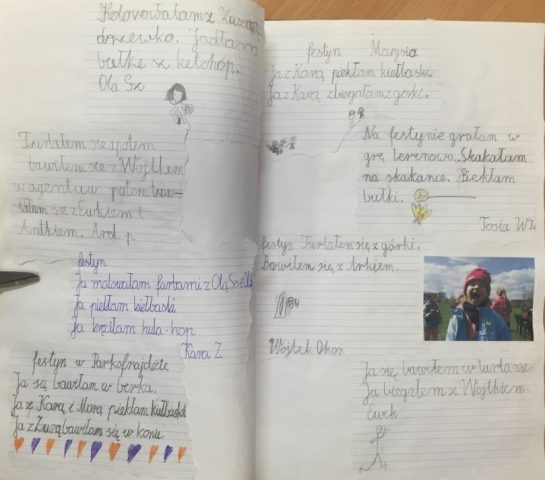 Kolorowałam z Zuzą
drzewko. Jadłam
bułkę z keczhop.
Ola Sz
Turlałem się i potem
bawiłem się z Wojtkiem
w agentów potem
się z Earkiem i
Antkiem. p.
festyn
Ja malowałam farbami z Olą
Ja piekłam kiełbaski.
Ja kręciłam hula-hop.
Kara Z.
festyn w Parkofrajdzie
Ja się bawłam w berka.
Ja z Karą i Marą piekłam kiełbaski
Ja z Zuzą bawiłam się w konie.
festyn Marysia
Ja z Karą piekłam kiełbaski.
Ja z Karą zbiegałam z górki.
Na festynie grałam w
grę terenową. Skakałam
na skakance. Piekłam
bułki.
Tosia W
festyn Turlałem się z górki.
Bawiłem się z
Wojtek
Ja się bawiłem w turlanie.
Ja biegałem z Wojtkiem.